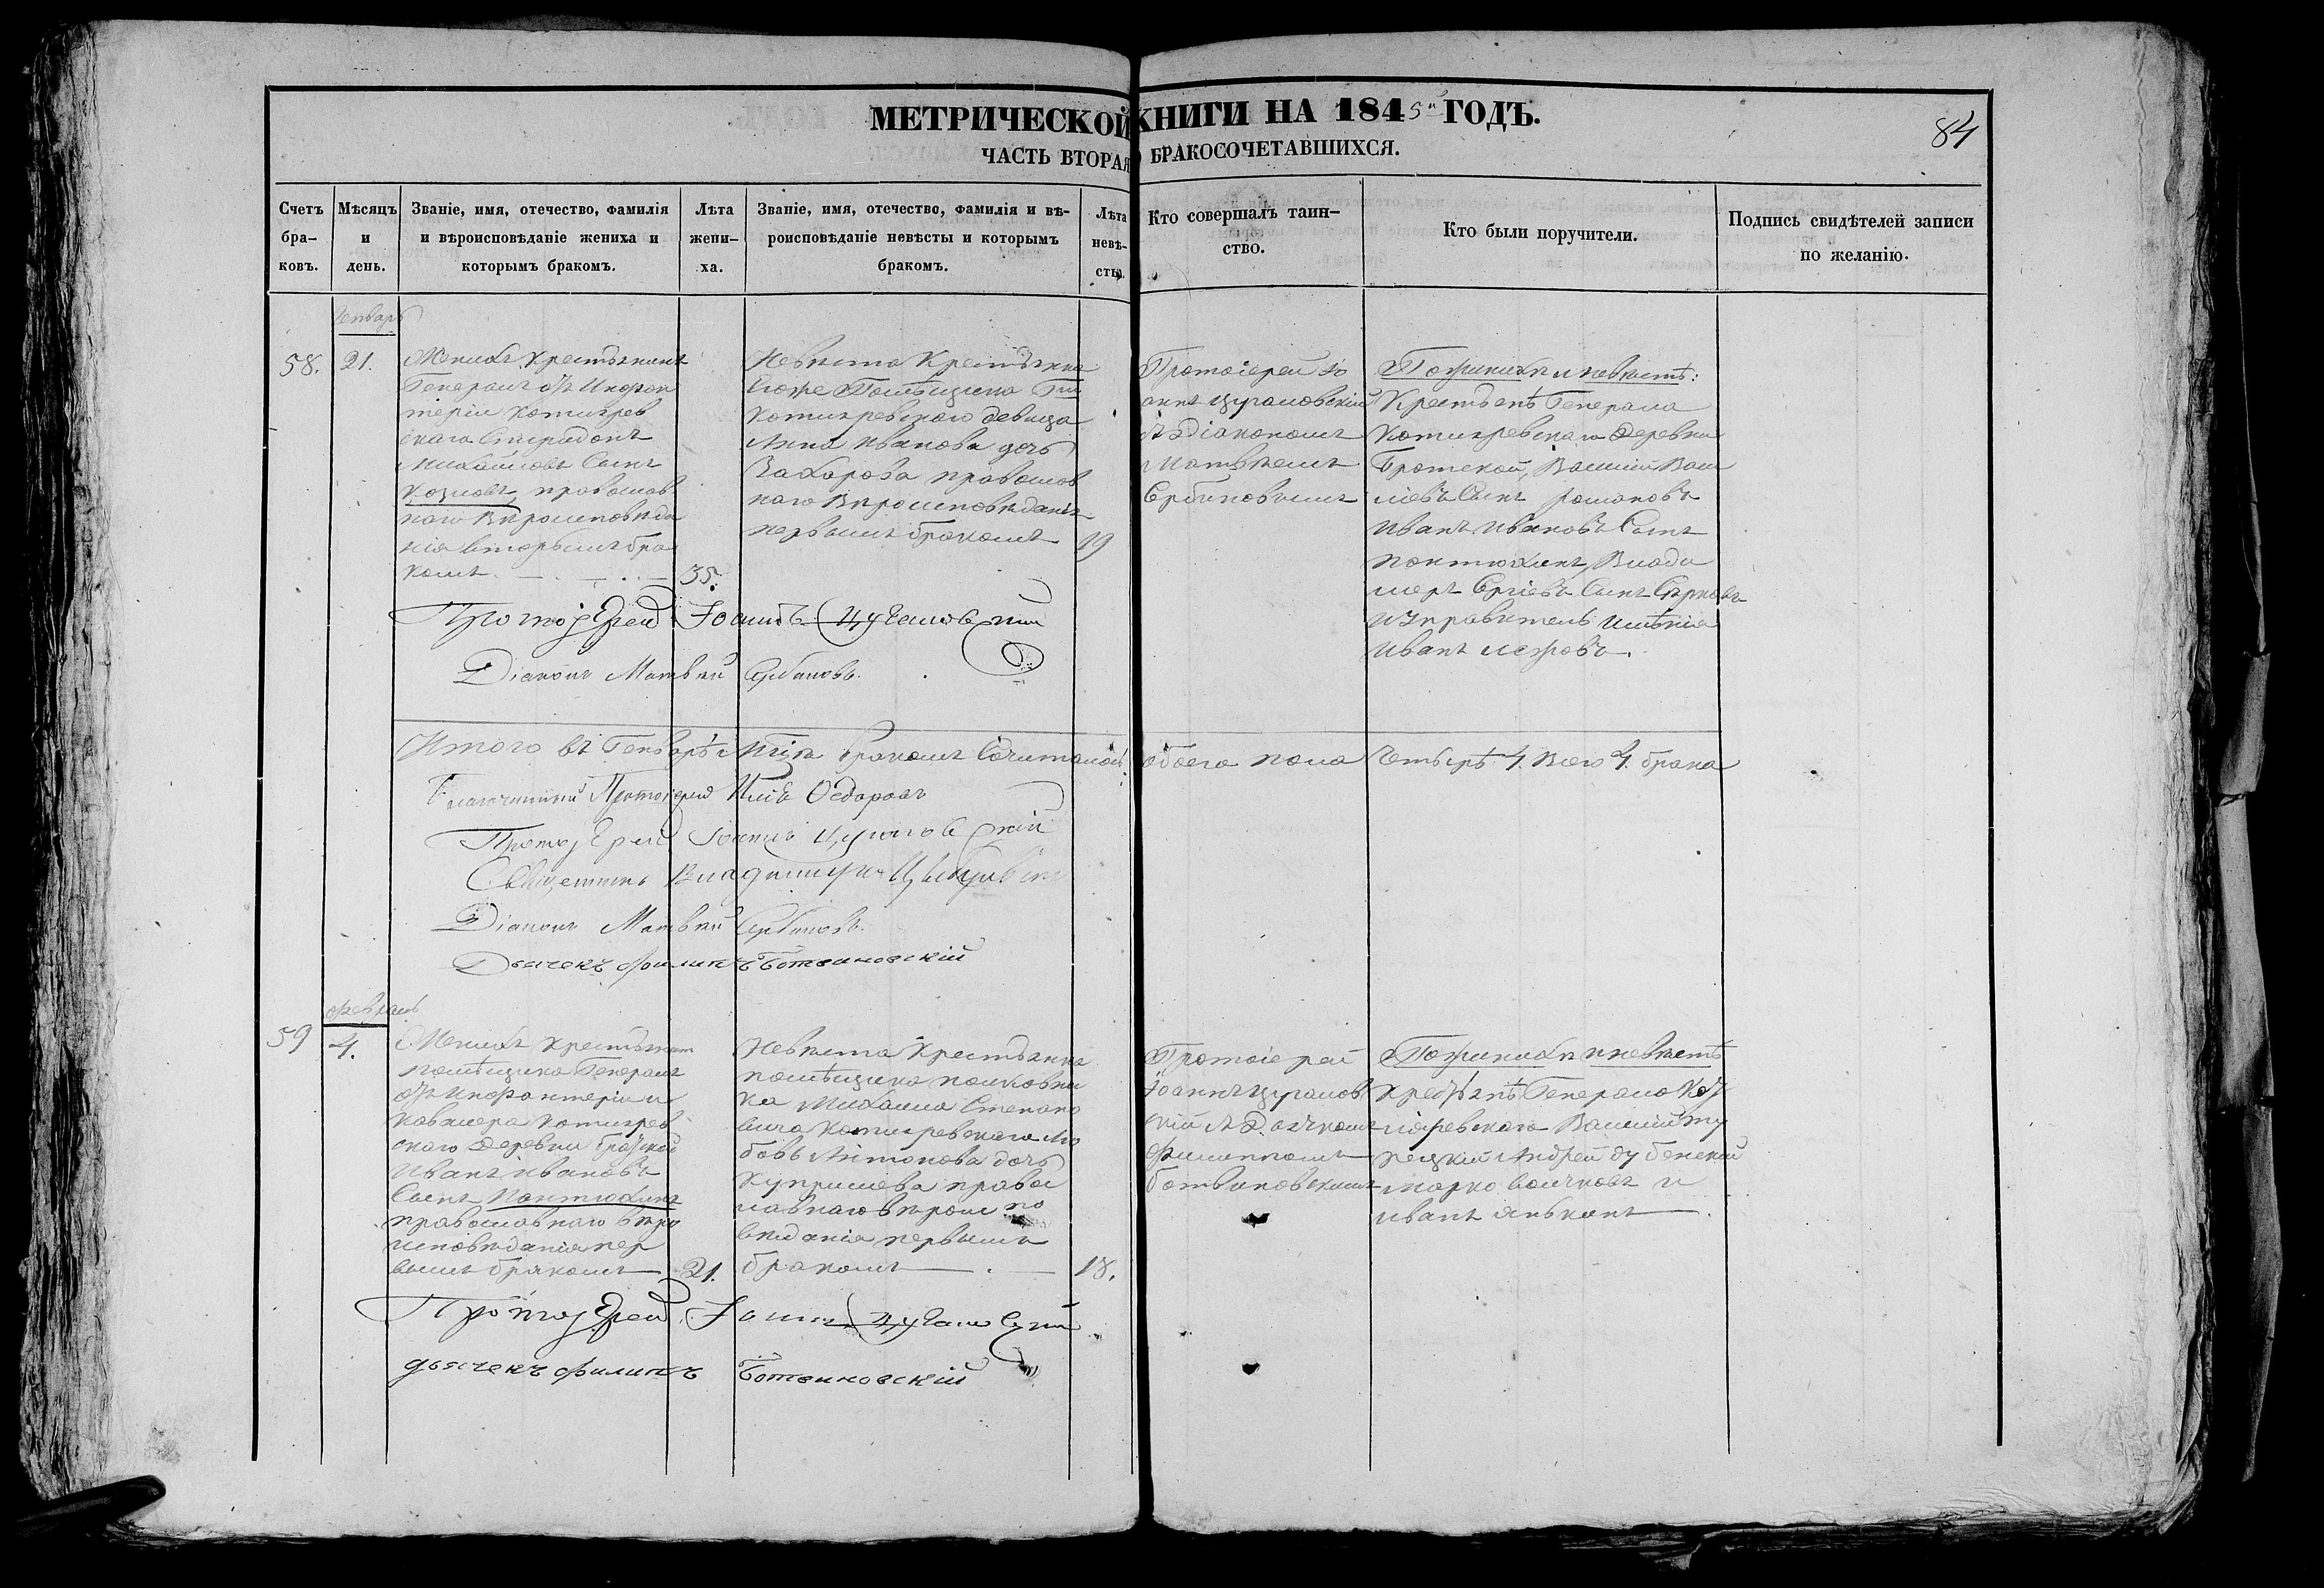 МЕТРИЧЕСКОЙ КНИГИ НА 1845й ГОДЪ.
84
ЧАСТЬ ВТОРАЯ О БРАКОСОЧЕТАВШИХСЯ.
Счетъ бра-
ковъ.
Мѣсяцъ
и
день.
Званіе, имя, отечество, фамилія
и вѣроисповѣданіе жениха и
которымъ бракомъ.
Лѣта
жени-
ха.
Званіе, имя, отечество, фамилія и вѣ-
роисповѣданіе невѣсты и которымъ
бракомъ.
Лѣта
невѣ-
сты.
Кто совершалъ таин-
ство.
Кто были поручители.
Подпись свидѣтелей записи
по желанію.
Генварь
58.
21.
Женихъ Крестьянинъ
Генерала отъ Инфан
теріи Котлярев
скаго Спиридонъ
Михайловъ Сынъ
Козловъ, православ
наго Вѣроисповѣда
нія вторымъ бра
комъ.
35.
Невѣста Крестьянка
Помѣщика
Котляревскаго девица
Анна Иванова дочь
Захарова православ
наго Вѣроисповѣданія
первымъ бракомъ
19
Протоіерей Іо
аннъ Цугаловскій
съ Діакономъ
Матвѣемъ
Сербиновымъ
По женихѣ и невѣстѣ:
Крестьянѣ Генерала
Котляревскаго деревни
Братской, Василій Васи
ліевъ Сынъ Романовъ
Иванъ Ивановъ Сынъ
Пантюхинъ, Влади
меръ Сергіевъ Сынъ
и Управитель Имѣнія
Иванъ
Протоіерей Іоаннъ Цугаловскій
Діаконъ Матвѣй Сербиновъ.
Итого въ Генварѣ Мцѣ бракомъ Сочиталось обоего пола Четырѣ 4. Всего 4. брака
Благочинный Протоіерей Илія Федоровъ
Протоіерей Іоаннъ Цугаловскій
Священникъ Владимиръ
Діаконъ Матвѣй Сербиновъ.
Дьячекъ Филипъ Ботвиновскій
Февраль
59
4.
Женихъ Крестьянинъ
помѣщика Генерала
отъ Инфантеріи и
Кавалера Котлярев
скаго Деревни Братской
Иванъ Ивановъ
Сынъ Пантюхинъ
православнаго вѣро
исповѣданія пер
вымъ бракомъ
21.
Невѣста Крестьянка
помѣщика полковни
ка Михаила Степано
вича Котляревскаго Лю
бовь Антонова дочь
Куприева правос
лавнаго вѣроиспо
вѣданія первымъ
бракомъ
18.
Протоіерей
Іоаннъ Цугалов
скій съ Дьячкомъ
Филиппомъ
Ботвиновскимъ
По женихѣ и невѣстѣ
Крестьянѣ Генерала Кот
ляревскаго Василій Ту
рецкій Андрей Дубенскій
Марко Волчковъ и
Иванъ
Протоіерей Іоаннъ Цугаловскій
Дьячекъ Филипъ Ботвиновскій